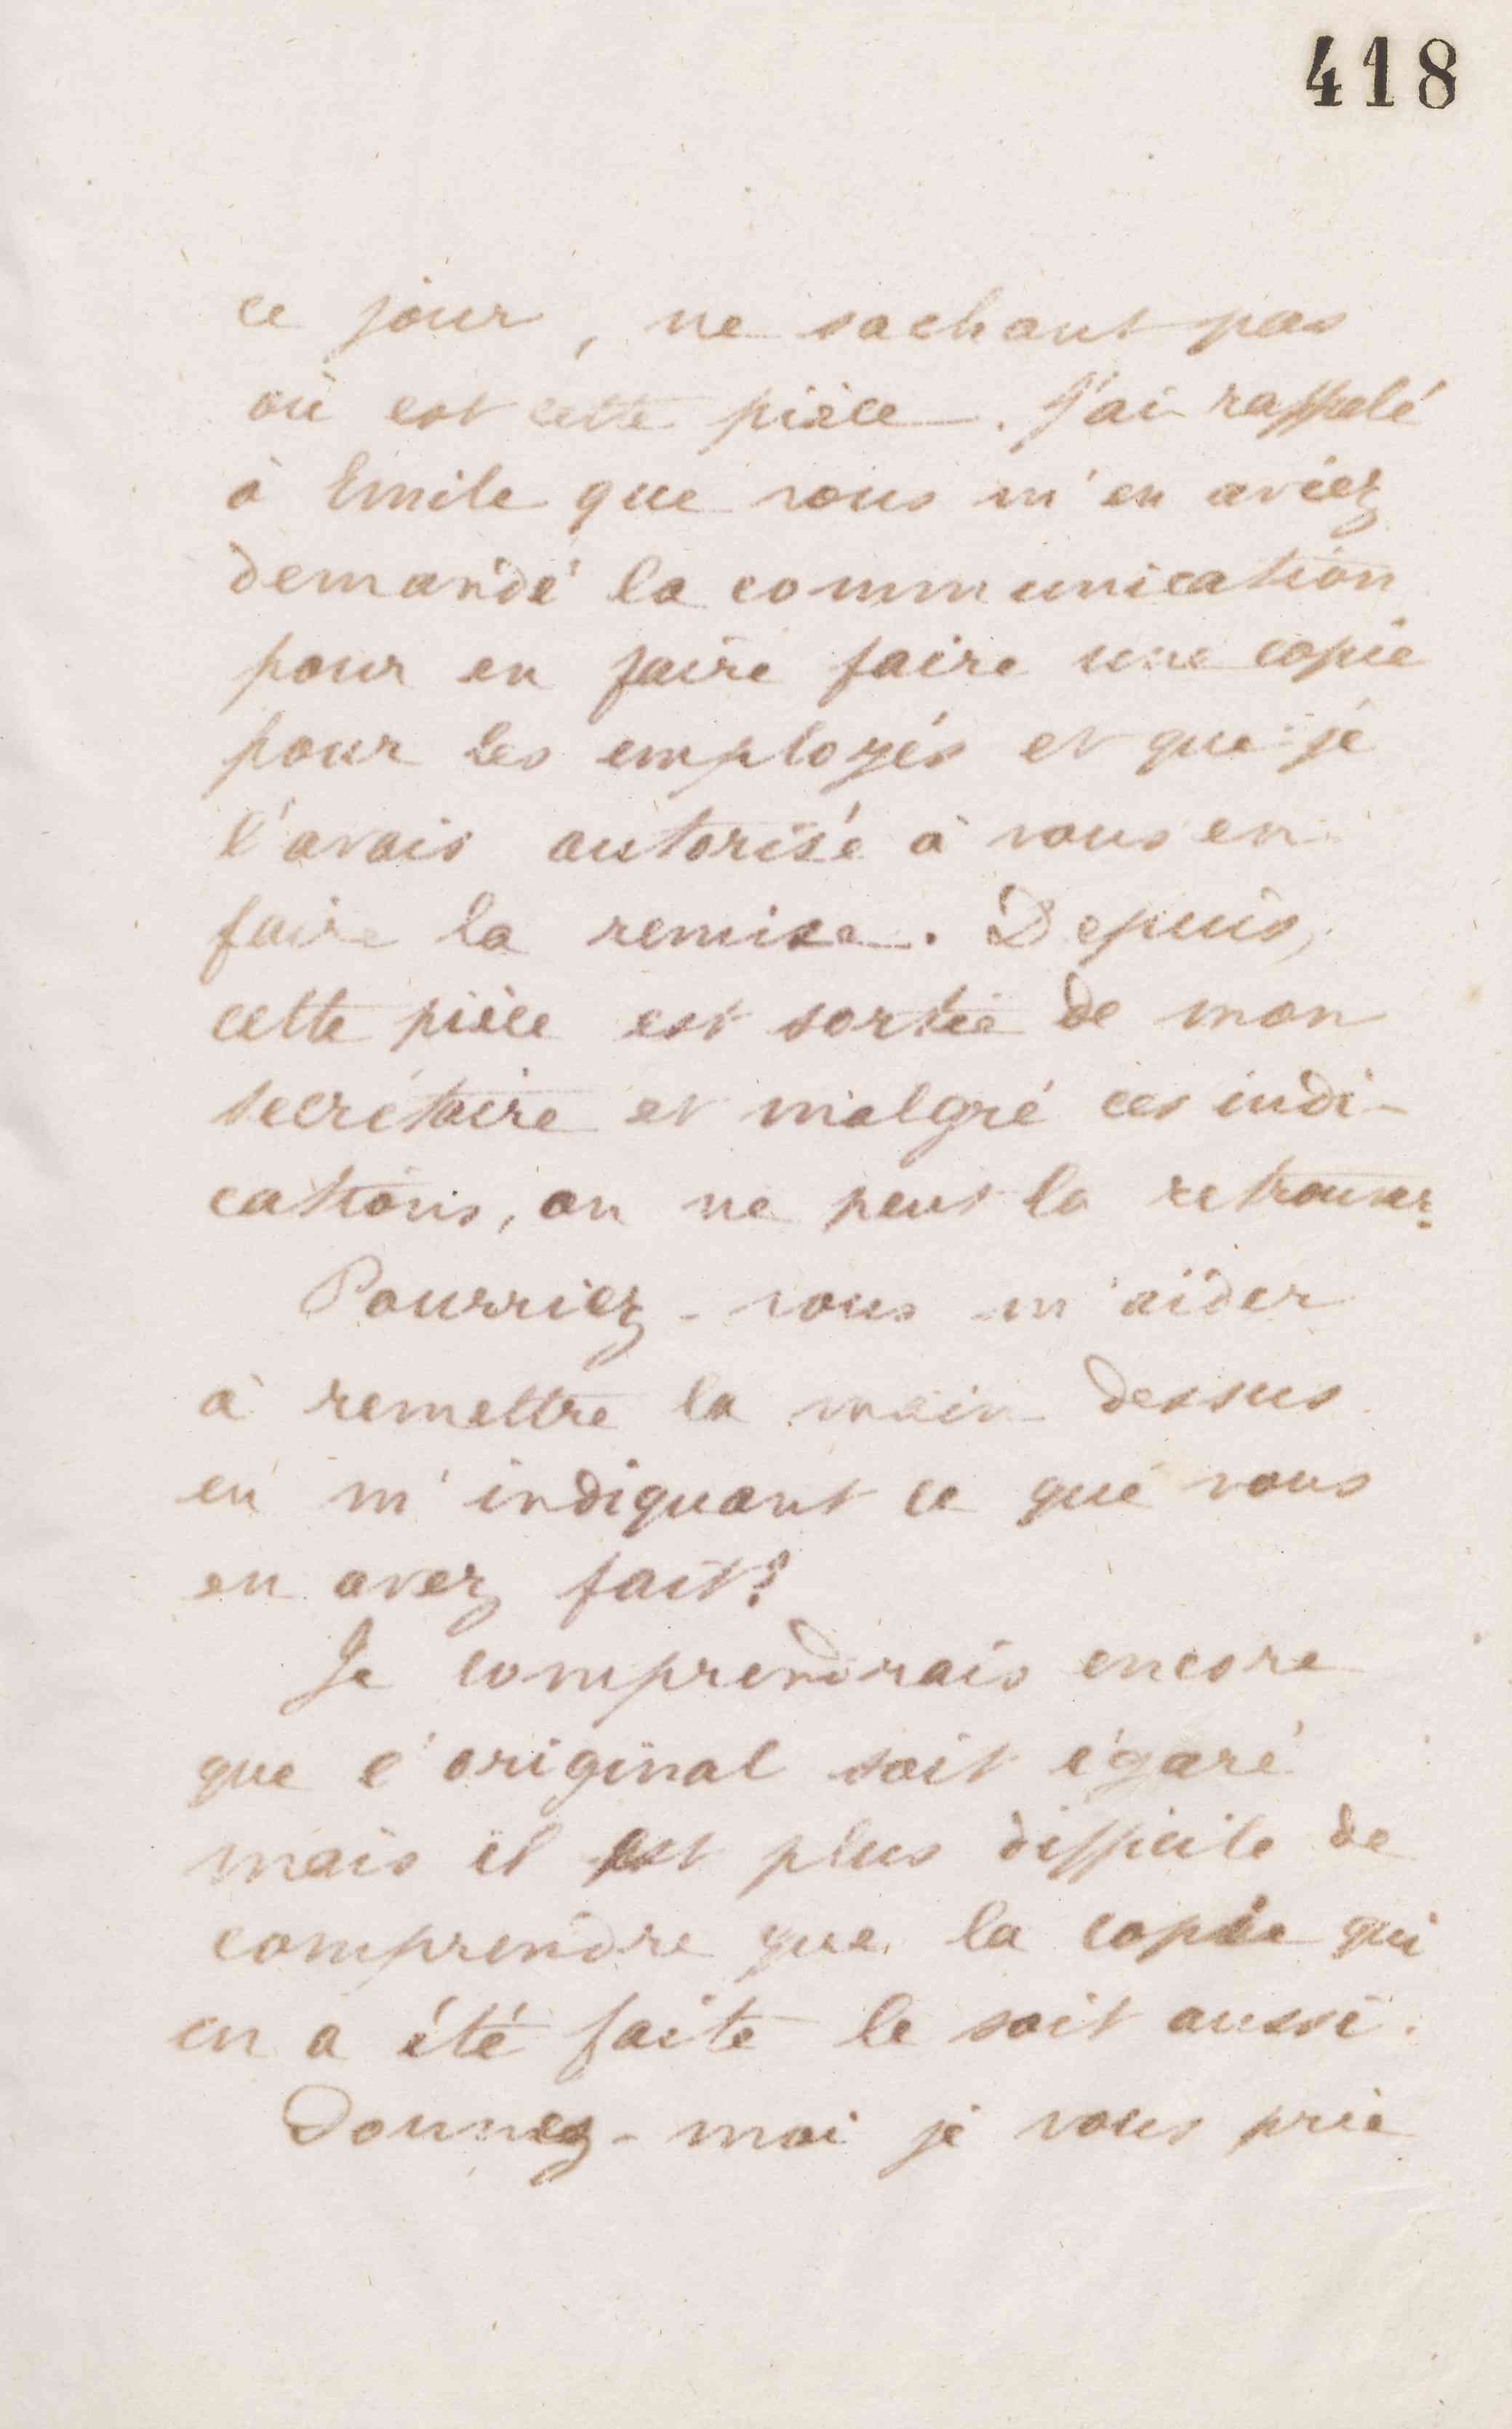 418
ce jour, ne sachant pas
où est cette pièce. J'ai rappelé
à Emile que vous m'en aviez
demandé la communication
pour en faire faire une copie
pour les employés et que je
l'avais autorisé à vous en
faire la remise. Depuis,
cette pièce est sortie de mon
secrétaire et malgré ces indi-
cations, on ne peut la retrouver.
Pourriez-vous m'aider
à remettre la main dessus
en m'indiquant ce que vous
en avez fait?
Je comprendrais encore
que l'original soit égaré
mais il est plus difficile de
comprendre que la copie qui
en a été faite le soit aussi.
Donnez-moi je vous prie